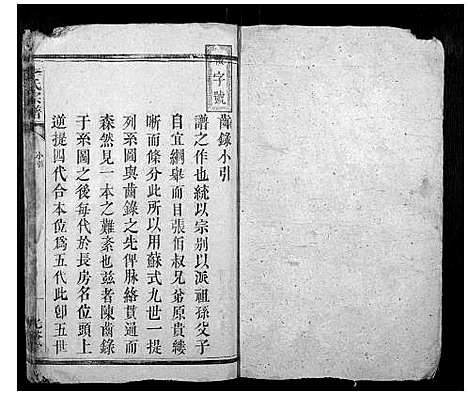 字號
齒錄小引
譜之作也統以宗别以派祖孫父子
自宜綱舉而目張伯叔兄弟原貴縷
晰而條分此所以用蘇式九世一提
列系圖與齒錄之先俾脉絡貫通而
森然見一本之難紊也若者陳齒錄
于系圖之後每代於長房名位頭上
逆提四代合本位爲五代此卽五世
氏宗譜
小引